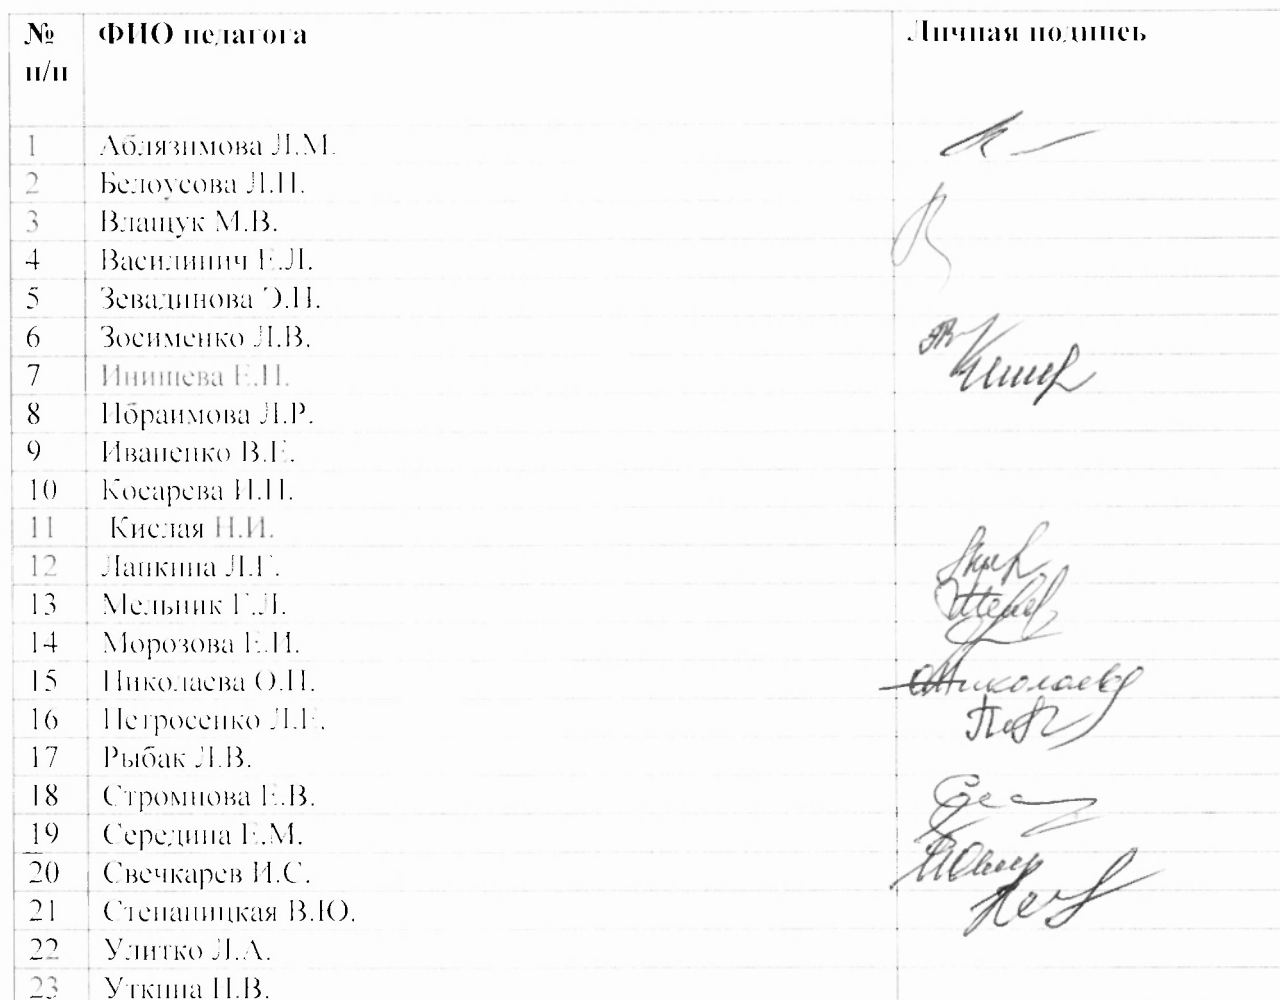 № ФИО педагога Личная подпись
п/п
1 Аблязимова Л.М.
2 Белоусова Л.П.
3 Влащук М.В.
4 Василинич Е.Л.
5 Зевадинова Э.Н.
6 Зосименко Л.В.
7 Инишева Е.П.
8 Ибраимова Л.Р.
9 Иваненко В.Е.
10 Косарева И.П.
11 Кислая Н.И.
12 Лапкина Л.Г.
13 Мельник Г.Л.
14 Морозова Е.И.
15 Николаева О.П. Николаева
16 Петросенко Л.Е.
17 Рыбак Л.В.
18 Стромнова Е.В.
19 Середина Е.М.
20 Свечкарев И.С.
21 Степаницкая В.Ю.
22 Улитко Л.А.
23 Уткина Н.В.